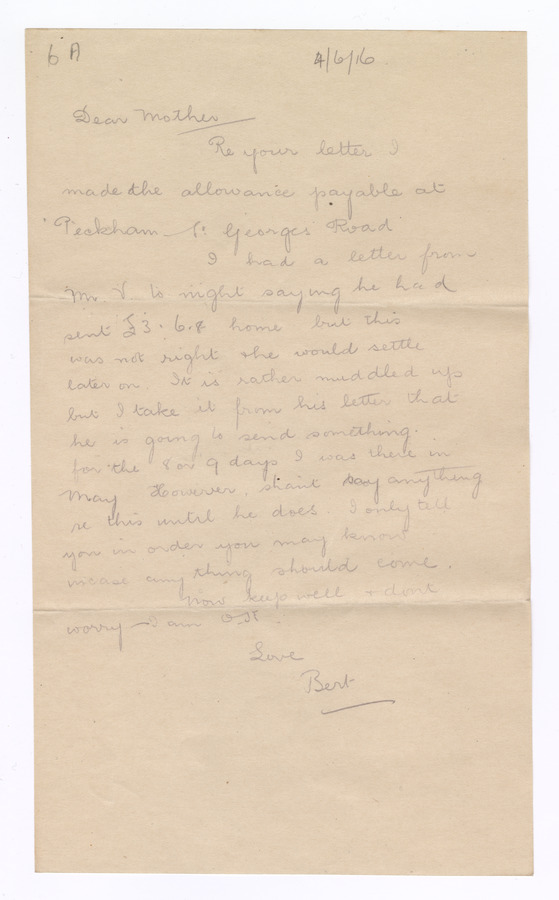 6 A 4/6/16
Dear Mother
Re your letter I
made the allowance payable at
Peckham St Georges Road
I had a letter from
Mr. V. to night saying he had
sent £3.6.8 home but this
was not right & he would settle
later on. It is rather muddled up
but I take it from his letter that
he is going to send something.
for the 8 or 9 days I was there in
May However, shant say anything
re this until he does. I only tell
you in order you may know
incase any thing should come.
Now keep well & dont
worry - I am O.K.
Love
Bert